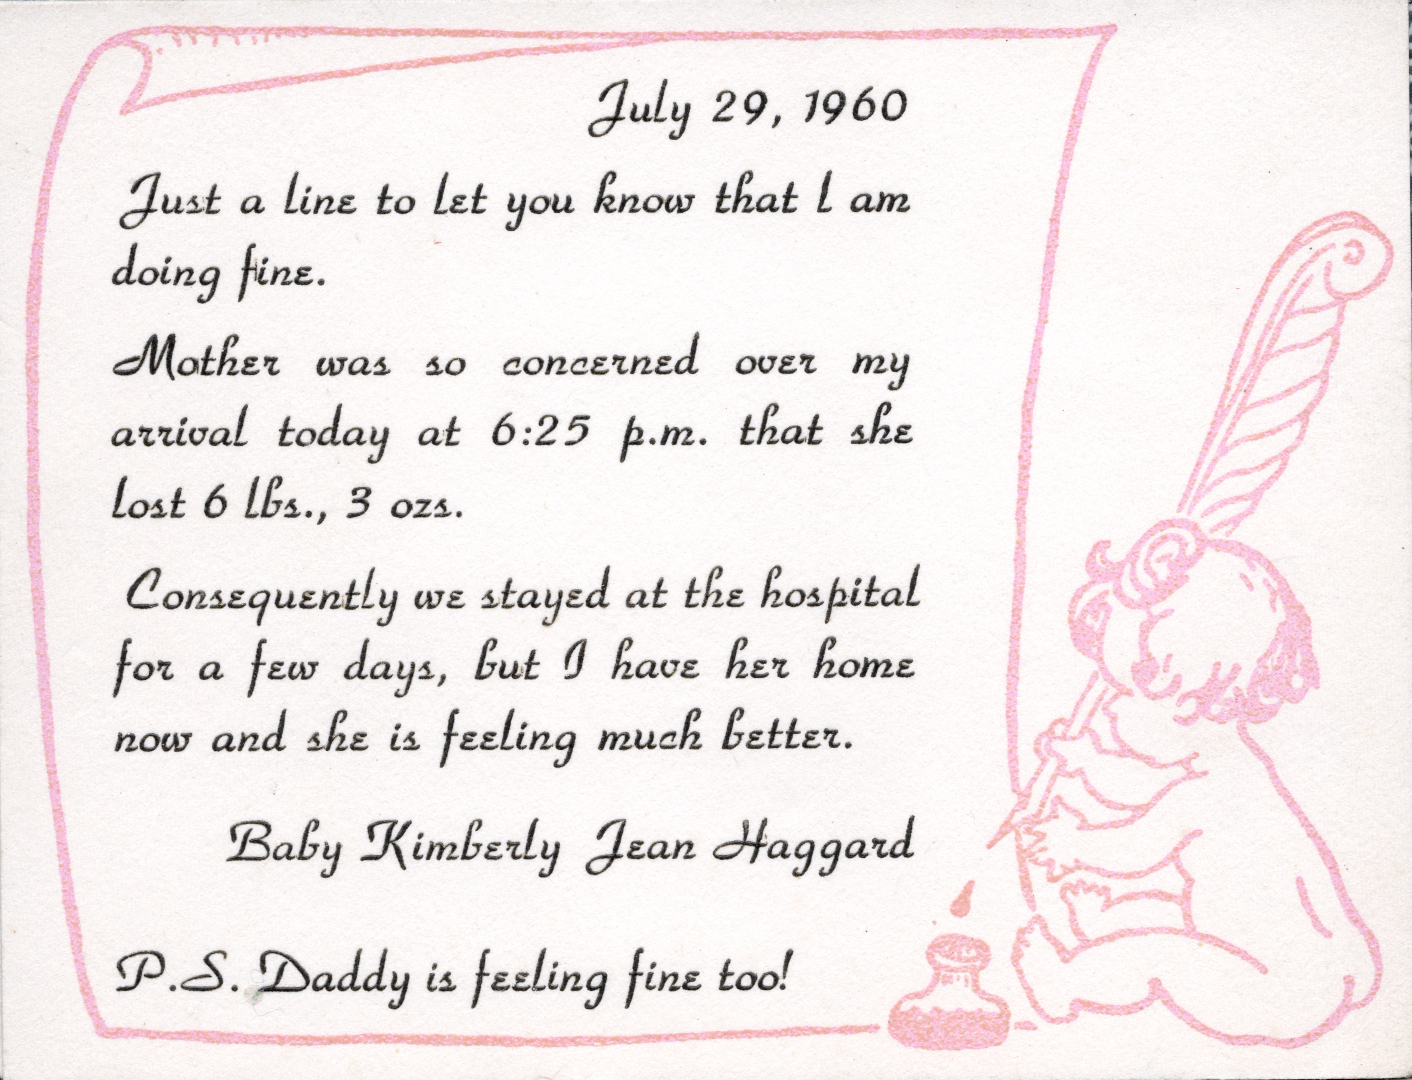 July 29, 1960
Just a line to let you know that I am
doing fine.
Mother was so concerned over my
arrival today at 6:25 p.m. that she
lost 6 lbs., 3 ozs.
Consequently we stayed at the hospital
for a few days, but I have her home
now and she is feeling much better.
Baby Kimberly Jean Haggard
P.S. Daddy is feeling fine too!